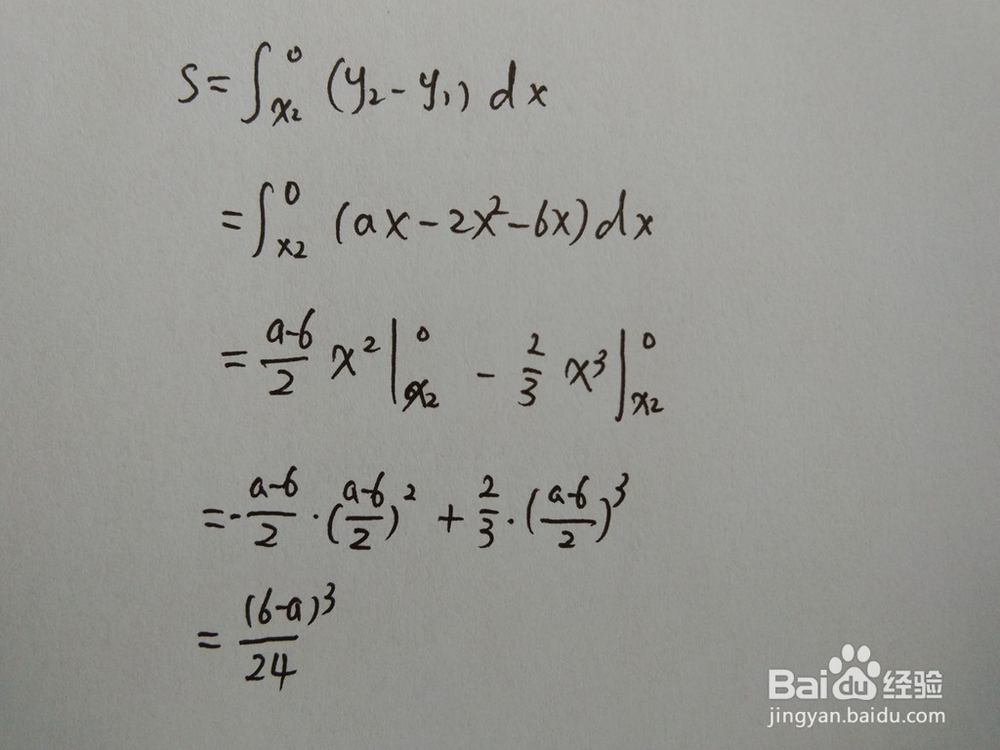 S=∫_{x₂}^{0} (y₂-y₁) dx
=∫_{x₂}^{0} (ax-2x²-6x)dx
=\frac{a-6}{2} x²|_{x₂}^{0} - \frac{2}{3} x³|_{x₂}^{0}
=-\frac{a-6}{2}·(\frac{a-6}{2})² + \frac{2}{3}·(\frac{a-6}{2})³
=\frac{(6-a)³}{24}
Baidu经验
jingyan.baidu.com